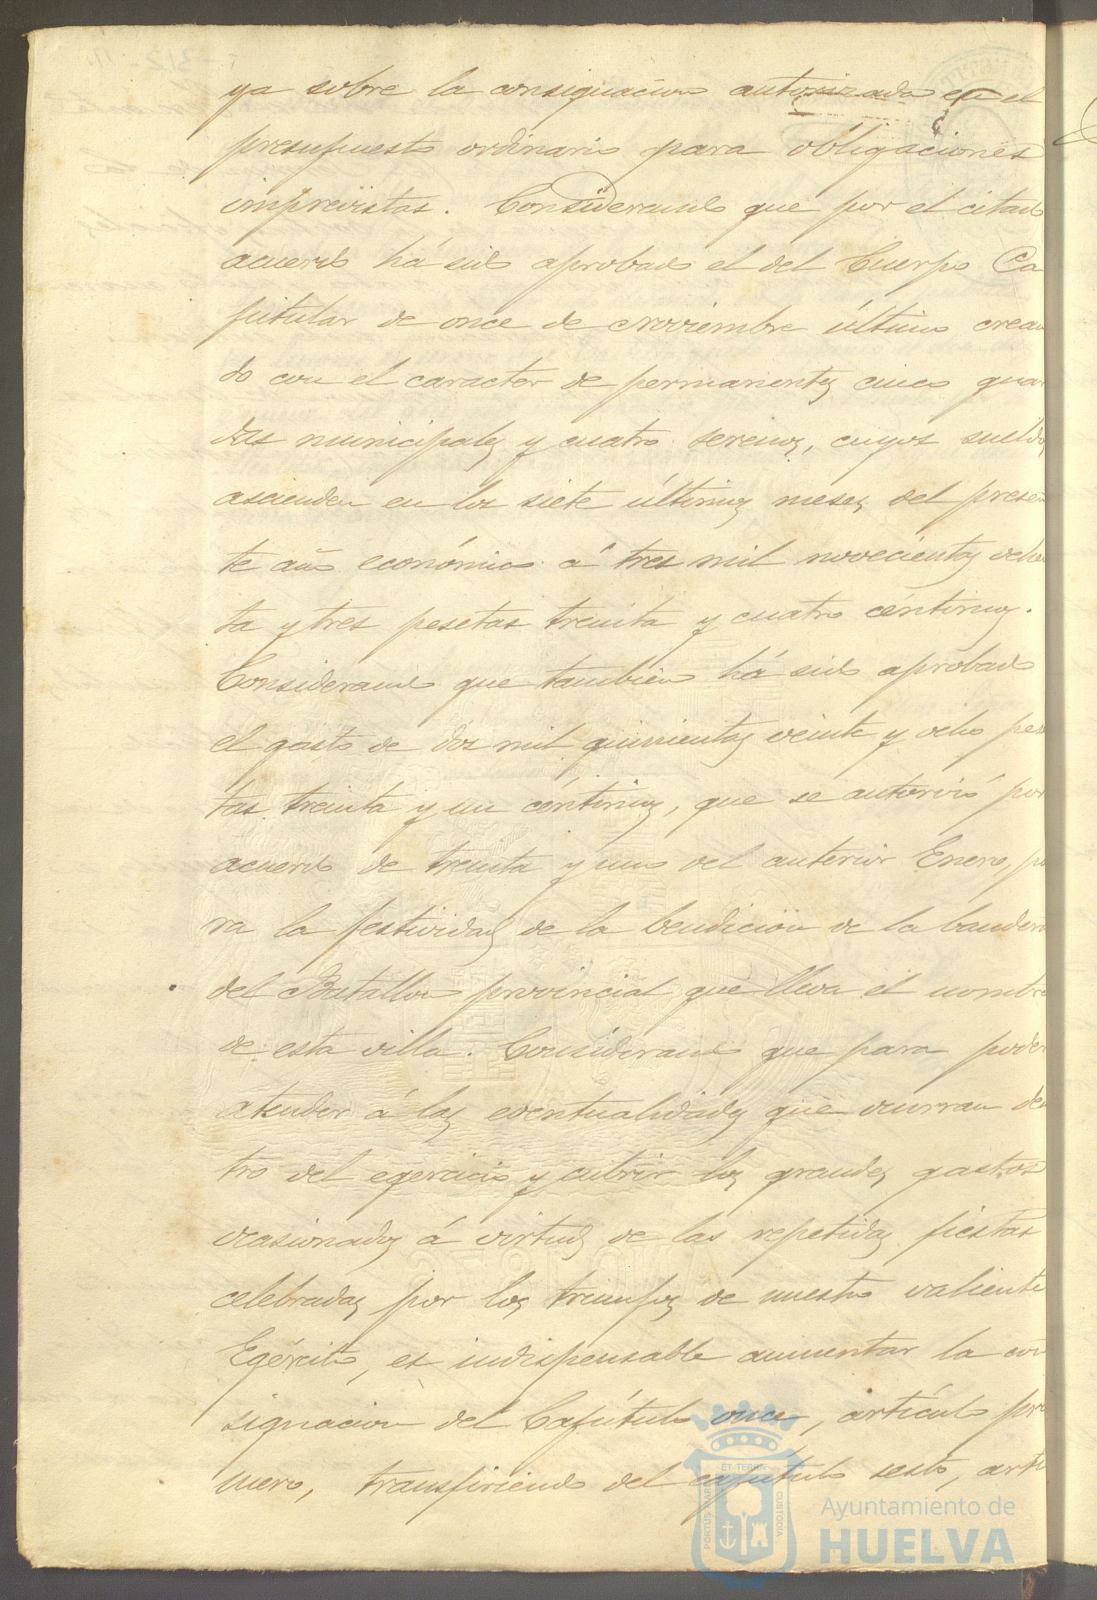 ya sobre la consignacion autorizada en el
presupuesto ordinario para obligaciones
imprevistas. Considerando que por el citado
acuerdo há sido aprobado el del Cuerpo Ca
pitular de once de Noviembre último crean
do con el caracter de permanentes cinco guar
dias municipales y cuatro serenos, cuyos sueldos
ascienden en los siete últimos meses del presen
te año económico á tres mil novecientas ochen
ta y tres pesetas treinta y cuatro céntimos.
Considerando que tambien há sido aprobado
el gasto de dos mil quinientas veinte y ocho pese
tas treinta y un céntimos, que se autorizó por
acuerdo de treinta y uno del anterior Enero, pa
ra la festividad de la bendicion de la bandera
del Batallon provincial que lleva el nombre
de esta villa. Considerando que para poder
atender á las eventualidades que ocurran den
tro del egercicio y cubrir los grandes gastos
ocasionados á virtud de las repetidas fiestas
celebradas por los triunfos de nuestro valiente
Egército, es indispensable aumentar la con
signacion del Capítulo once, artículo pri
mero, transfiriendo del capítulo sesto, artí
PORTUS MARIS ET TERRAE CUSTODIA
Ayuntamiento de
HUELVA